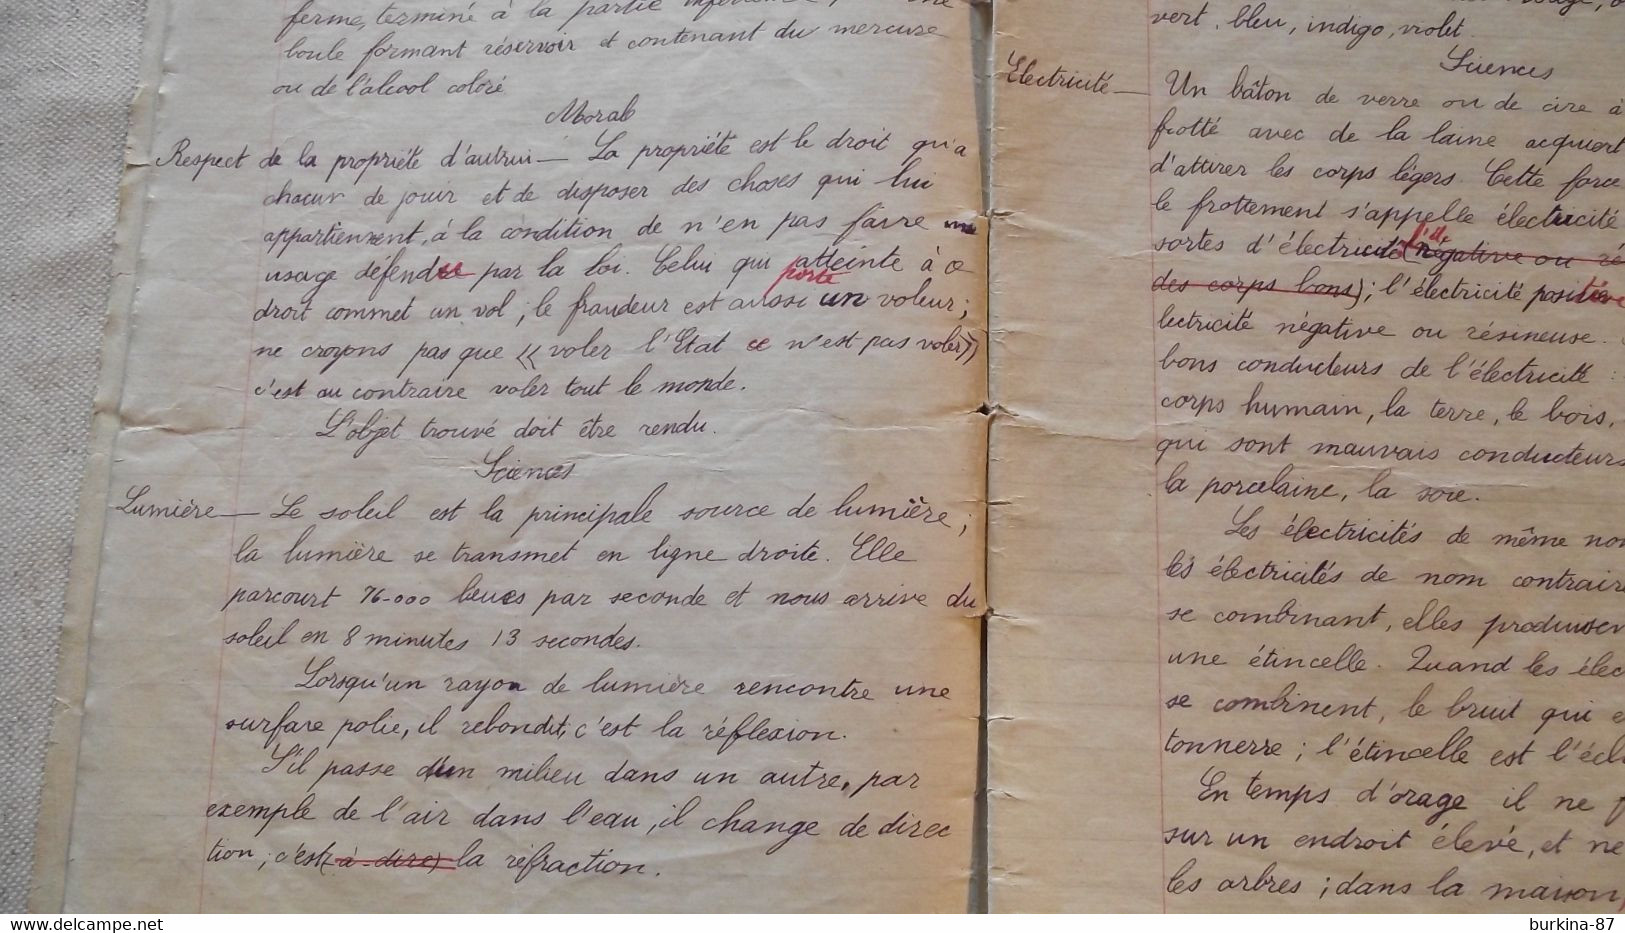 ferme, terminé à la partie
boule formant réservoir et contenant du mercure
ou de l'alcool coloré
Morale
Respect de la propriété d'autrui — La propriété est le droit qu'a
chacun de jouir et de disposer des choses qui lui
appartiennent, à la condition de n'en pas faire un
usage défendu par la loi. Celui qui porte atteinte à ce
droit commet un vol ; le fraudeur est aussi un voleur ;
ne croyons pas que « voler l'Etat ce n'est pas voler »
c'est au contraire voler tout le monde.
L'objet trouvé doit être rendu.
Sciences
Lumière — Le soleil est la principale source de lumière ;
la lumière se transmet en ligne droite. Elle
parcourt 76.000 lieues par seconde et nous arrive du
soleil en 8 minutes 13 secondes.
Lorsqu'un rayon de lumière rencontre une
surfare polie, il rebondit, c'est la réflexion.
S'il passe d'un milieu dans un autre, par
exemple de l'air dans l'eau, il change de direc
tion ; c'est (à-dire) la réfraction.
vert, bleu, indigo, violet.
Sciences
Electricité — Un bâton de verre ou de cire à
frotté avec de la laine acquiert
d'attirer les corps légers. Cette force
le frottement s'appelle électricité
sortes d'électricité (négative ou ré
des corps bons) ; l'électricité positive
lectricité négative ou résineuse.
bons conducteurs de l'électricité :
corps humain, la terre, le bois,
qui sont mauvais conducteurs
la porcelaine, la soie.
Les électricités de même nom
les électricités de nom contraire
se combinant, elles produisen
une étincelle. Quand les élec
se combinent, le bruit qui e
tonnerre ; l'étincelle est l'écl
En temps d'orage il ne f
sur un endroit élevé, et ne
les arbres ; dans la maison,
burkina-87